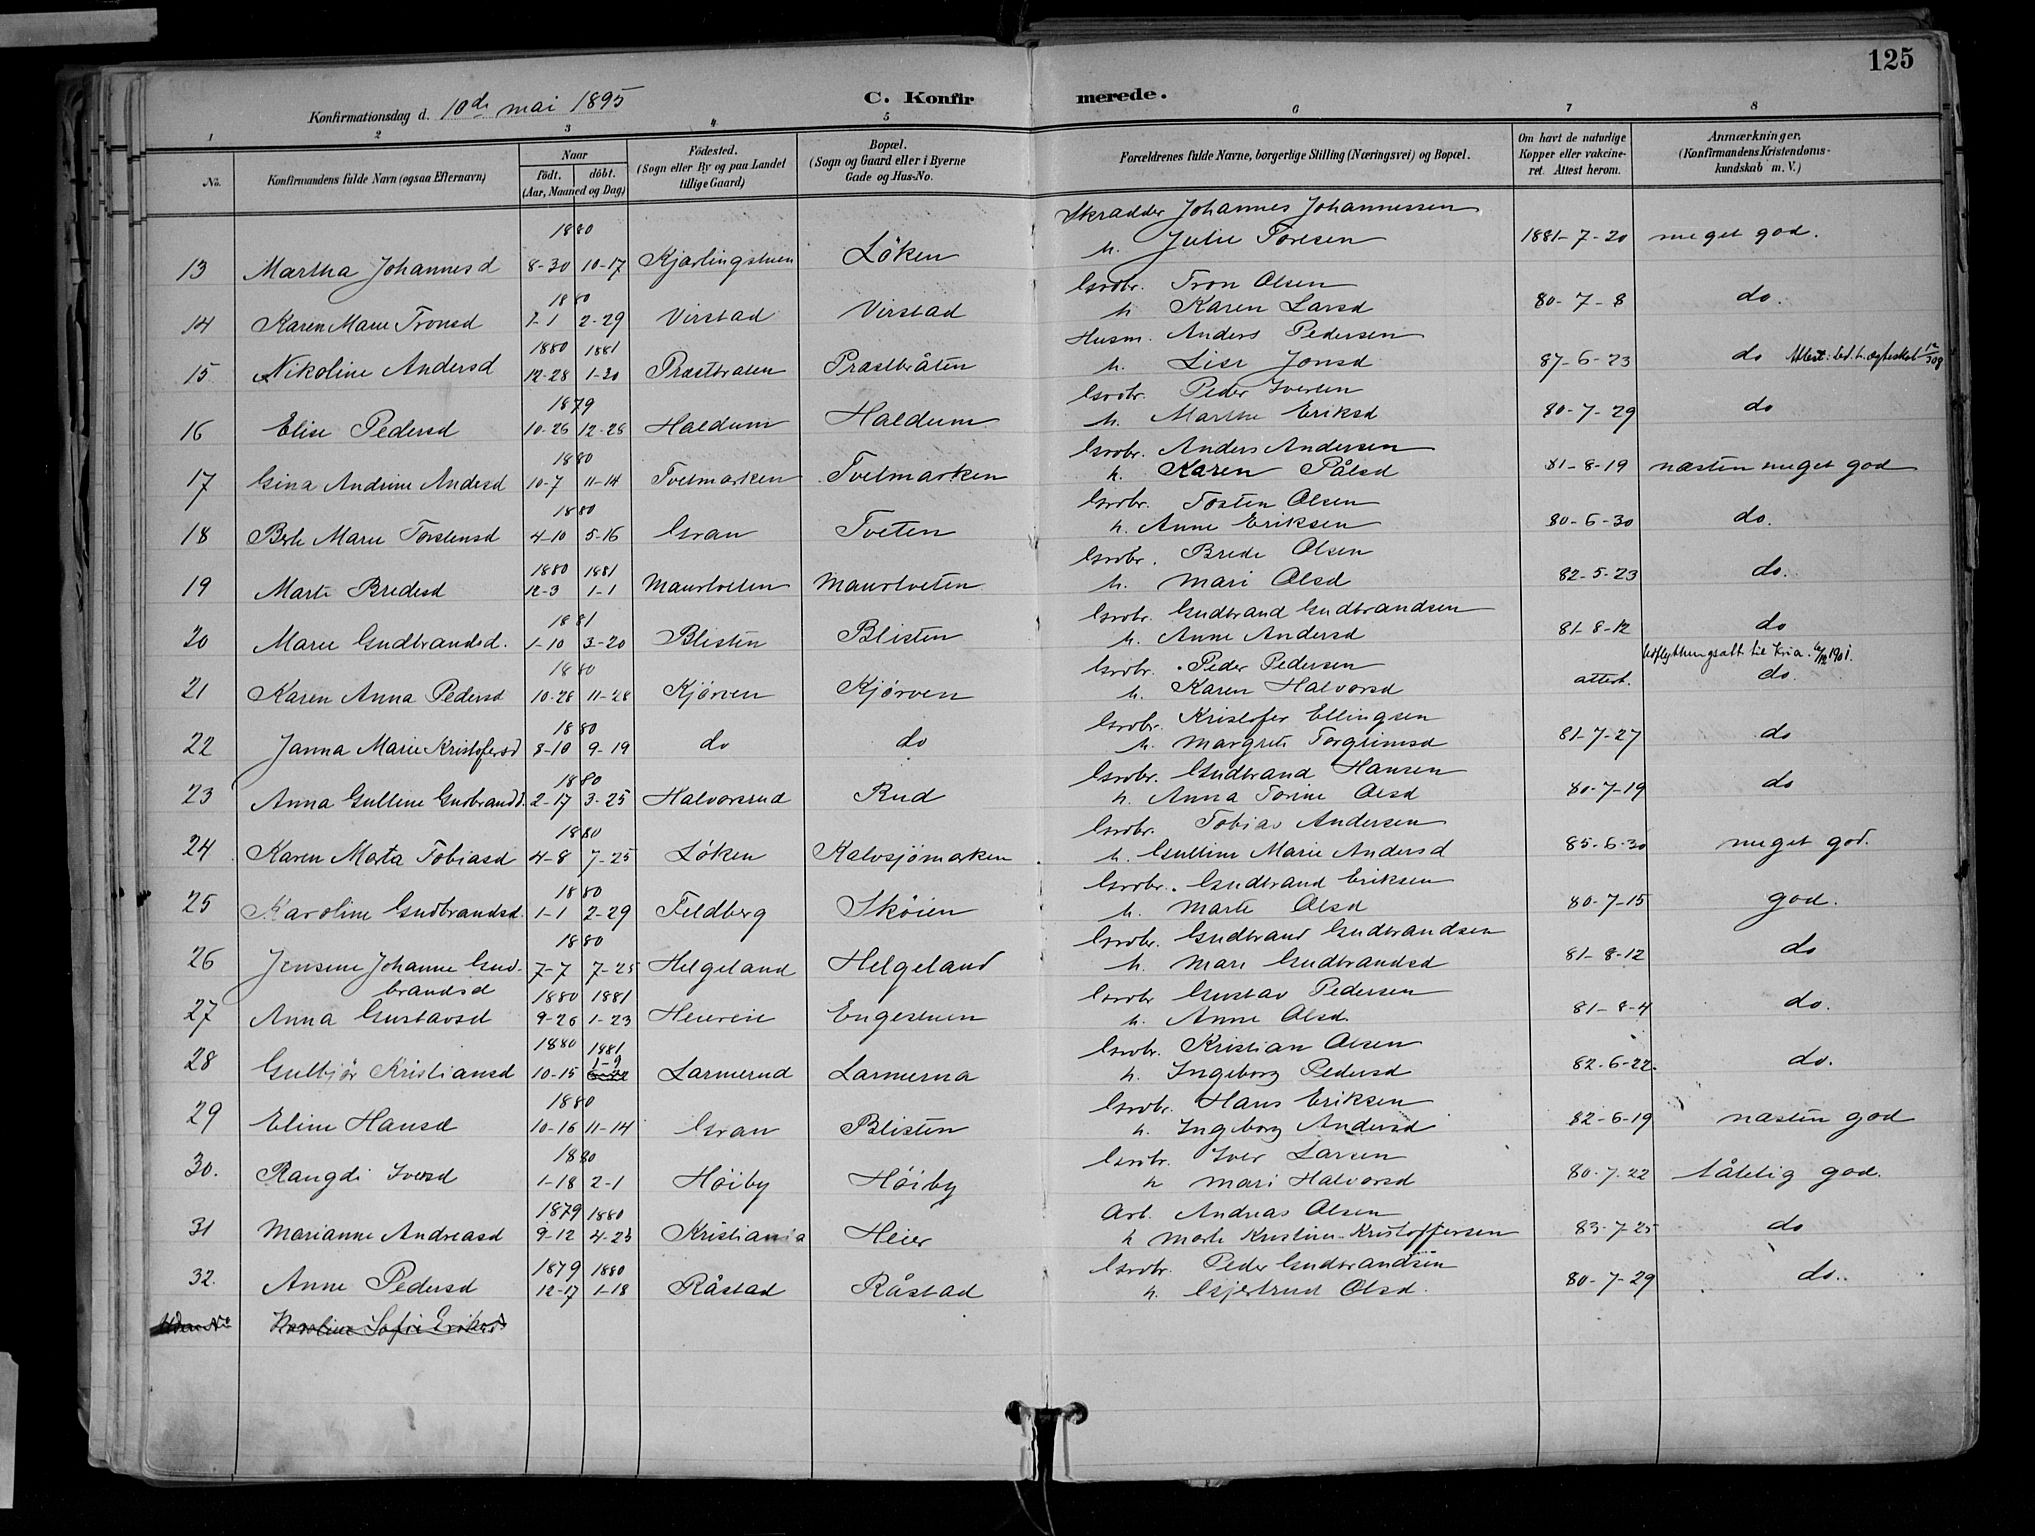 125
Konfirmationsdag d. 10de mai 1895
C. Konfirmerede.
1 2 3 4 5 6 7 8
No. Konfirmandens fulde Navn (ogsaa Efternavn) Naar født. døbt. (Aar, Maaned og Dag) Fødested. (Sogn eller By og paa Landet tillige Gaard) Bopæl. (Sogn og Gaard eller i Byerne Gade og Hus-No. Forældrenes fulde Navne, borgerlige Stilling (Næringsvei) og Bopæl. Om havt de naturlige Kopper eller vakcineret. Attest herom. Anmærkninger. (Konfirmandens Kristendomskundskab m. V.)
1880 Skrædder Johannes Johannessen
13 Martha Johannesd 8-30 10-17 Kjærlingstuen Løken h. Julie Toresen 1881-7-20 meget god.
1880 Grdbr. Tron Olsen
14 Karen Marie Tronsd 1-1 2-29 Virstad Virstad h Karen Larsd 80-7-8 do.
1880 1881 Husm. Anders Pedersen
15 Nikoline Andersd 12-28 1-30 Præstbraten Præstbråten h. Lise Jonsd 87-6-23 do
1879 Grdbr. Peder Iversen
16 Elise Pedersd 10-26 12-26 Haldum Haldum h. Marthe Eriksd 80-7-29 do
1880 Grdbr. Anders Andersen
17 Gina Andrine Andersd 10-7 11-14 Tvetmarken Tvetmarken h. Karen Pålsd 81-8-19 næsten meget god
1880 Grdbr. Tosten Olsen
18 Berte Marie Torstensd 4-10 5-16 Gran Tveten h. Anne Eriksen 80-6-30 do.
1880 1881 Grdbr. Brede Olsen
19 Marte Bredesd 12-3 1-1 Maurtveten Maurtveten h. Mari Olsd 82-5-23 do.
1881 Grdbr. Gudbrand Gudbrandsen
20 Marie Gudbrandsd. 1-10 3-20 Blisten Blisten h. Anne Andersd 81-8-12 do
1880 Grdbr. Peder Pedersen Udflytningsatt. til Kr.a. 1901.
21 Karen Anna Pedersd 10-28 11-28 Kjørven Kjørven h. Karen Halvorsd attest. do.
1880 Grdbr. Kristofer Ellingsen
22 Janna Marie Kristofersd 8-10 9-19 do do h. Margrete Torgrimsd 81-7-27 do
1880 Grdbr. Gudbrand Hansen
23 Anna Gulline Gudbrandd. 2-17 3-25 Halvorsrud Rud h. Anna Torine Olsd 80-7-19 do
1880 Grdbr. Tobias Andersen
24 Karen Marta Tobiasd 4-8 7-25 Løken Kalvsjømarken h. Gulline Marie Andersd 85-6-30 meget god.
1880 Grdbr. Gudbrand Eriksen
25 Karoline Gudbrandsd. 1-1 2-29 Feldberg Skøien h. Marte Olsd 80-7-15 god.
1880 Grdbr. Gudbrand Gudbrandsen
26 Jensine Johanne Gud- 7-7 7-25 Helgeland Helgeland h. Mari Gudbrandsd 81-8-12 do
brandsd 1880 1881 Grdbr Gustav Pedersen
27 Anna Gustavsd 9-26 1-23 Heiereie Engestuen h. Anne Olsd. 81-8-4 do.
1880 1881 Grdbr. Kristian Olsen
28 Gulbjør Kristiansd 10-15 1-9 Larmerud Larmerna h. Ingeborg Pedersd 82-6-22. do.
1880 Grdbr. Hans Eriksen
29 Eline Hansd 10-16 11-14 Gran Blisten h. Ingeborg Andersd 82-6-19 næsten god
1880 Grdbr. Iver Larsen
30. Rangdi Iversd 1-18 2-1 Høiby Høiby h Mari Halvorsd 80-7-22 tålelig god.
1879 1880 Arb. Andreas Olsen
31 Marianne Andreasd 9-12 4-23 Kristiania Heier h Marte Kristine Kristoffersen 83-7-25 do
1879 1880 Grdbr. Peder Gudbrandsen
32. Anne Pedersd 12-17 1-18 Råstad Råstad h. Gjertrud Olsd. 80-7-29 do.
Uden No Karoline Sofie Eriksd